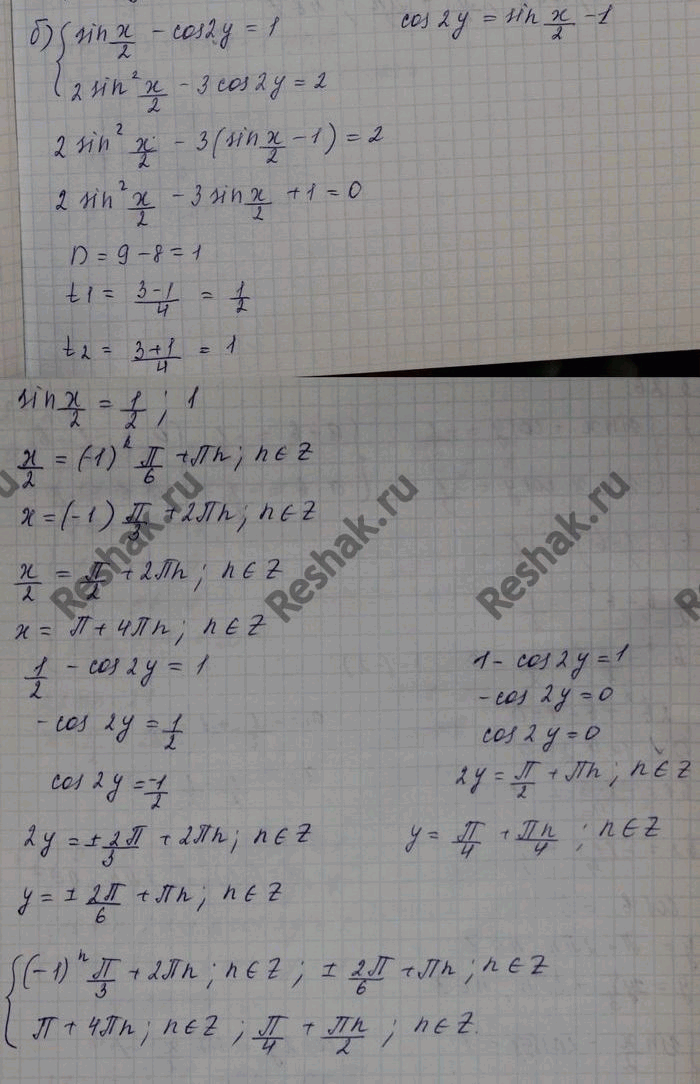 б) { sin x/2 - cos2y = 1
cos 2y = sin x/2 - 1
2 sin² x/2 - 3 cos 2y = 2
2 sin² x/2 - 3(sin x/2 - 1) = 2
2 sin² x/2 - 3 sin x/2 + 1 = 0
D = 9 - 8 = 1
t1 = (3-1)/4 = 1/2
t2 = (3+1)/4 = 1
sin x/2 = 1/2 ; 1
x/2 = (-1)ⁿ π/6 + πn ; n ∈ Z
x = (-1) π/3 + 2πn ; n ∈ Z
x/2 = π/2 + 2πn ; n ∈ Z
x = π + 4πn ; n ∈ Z
1/2 - cos 2y = 1
- cos 2y = 1/2
cos 2y = -1/2
2y = ± 2π/3 + 2πn ; n ∈ Z
y = ± 2π/6 + πn ; n ∈ Z
1 - cos 2y = 1
- cos 2y = 0
cos 2y = 0
2y = π/2 + πn ; n ∈ Z
y = π/4 + πn/4 ; n ∈ Z
{ (-1)ⁿ π/3 + 2πn ; n ∈ Z ; ± 2π/6 + πn ; n ∈ Z
π + 4πn ; n ∈ Z ; π/4 + πn/2 ; n ∈ Z.
Reshak.ru
Reshak.ru
Reshak.ru